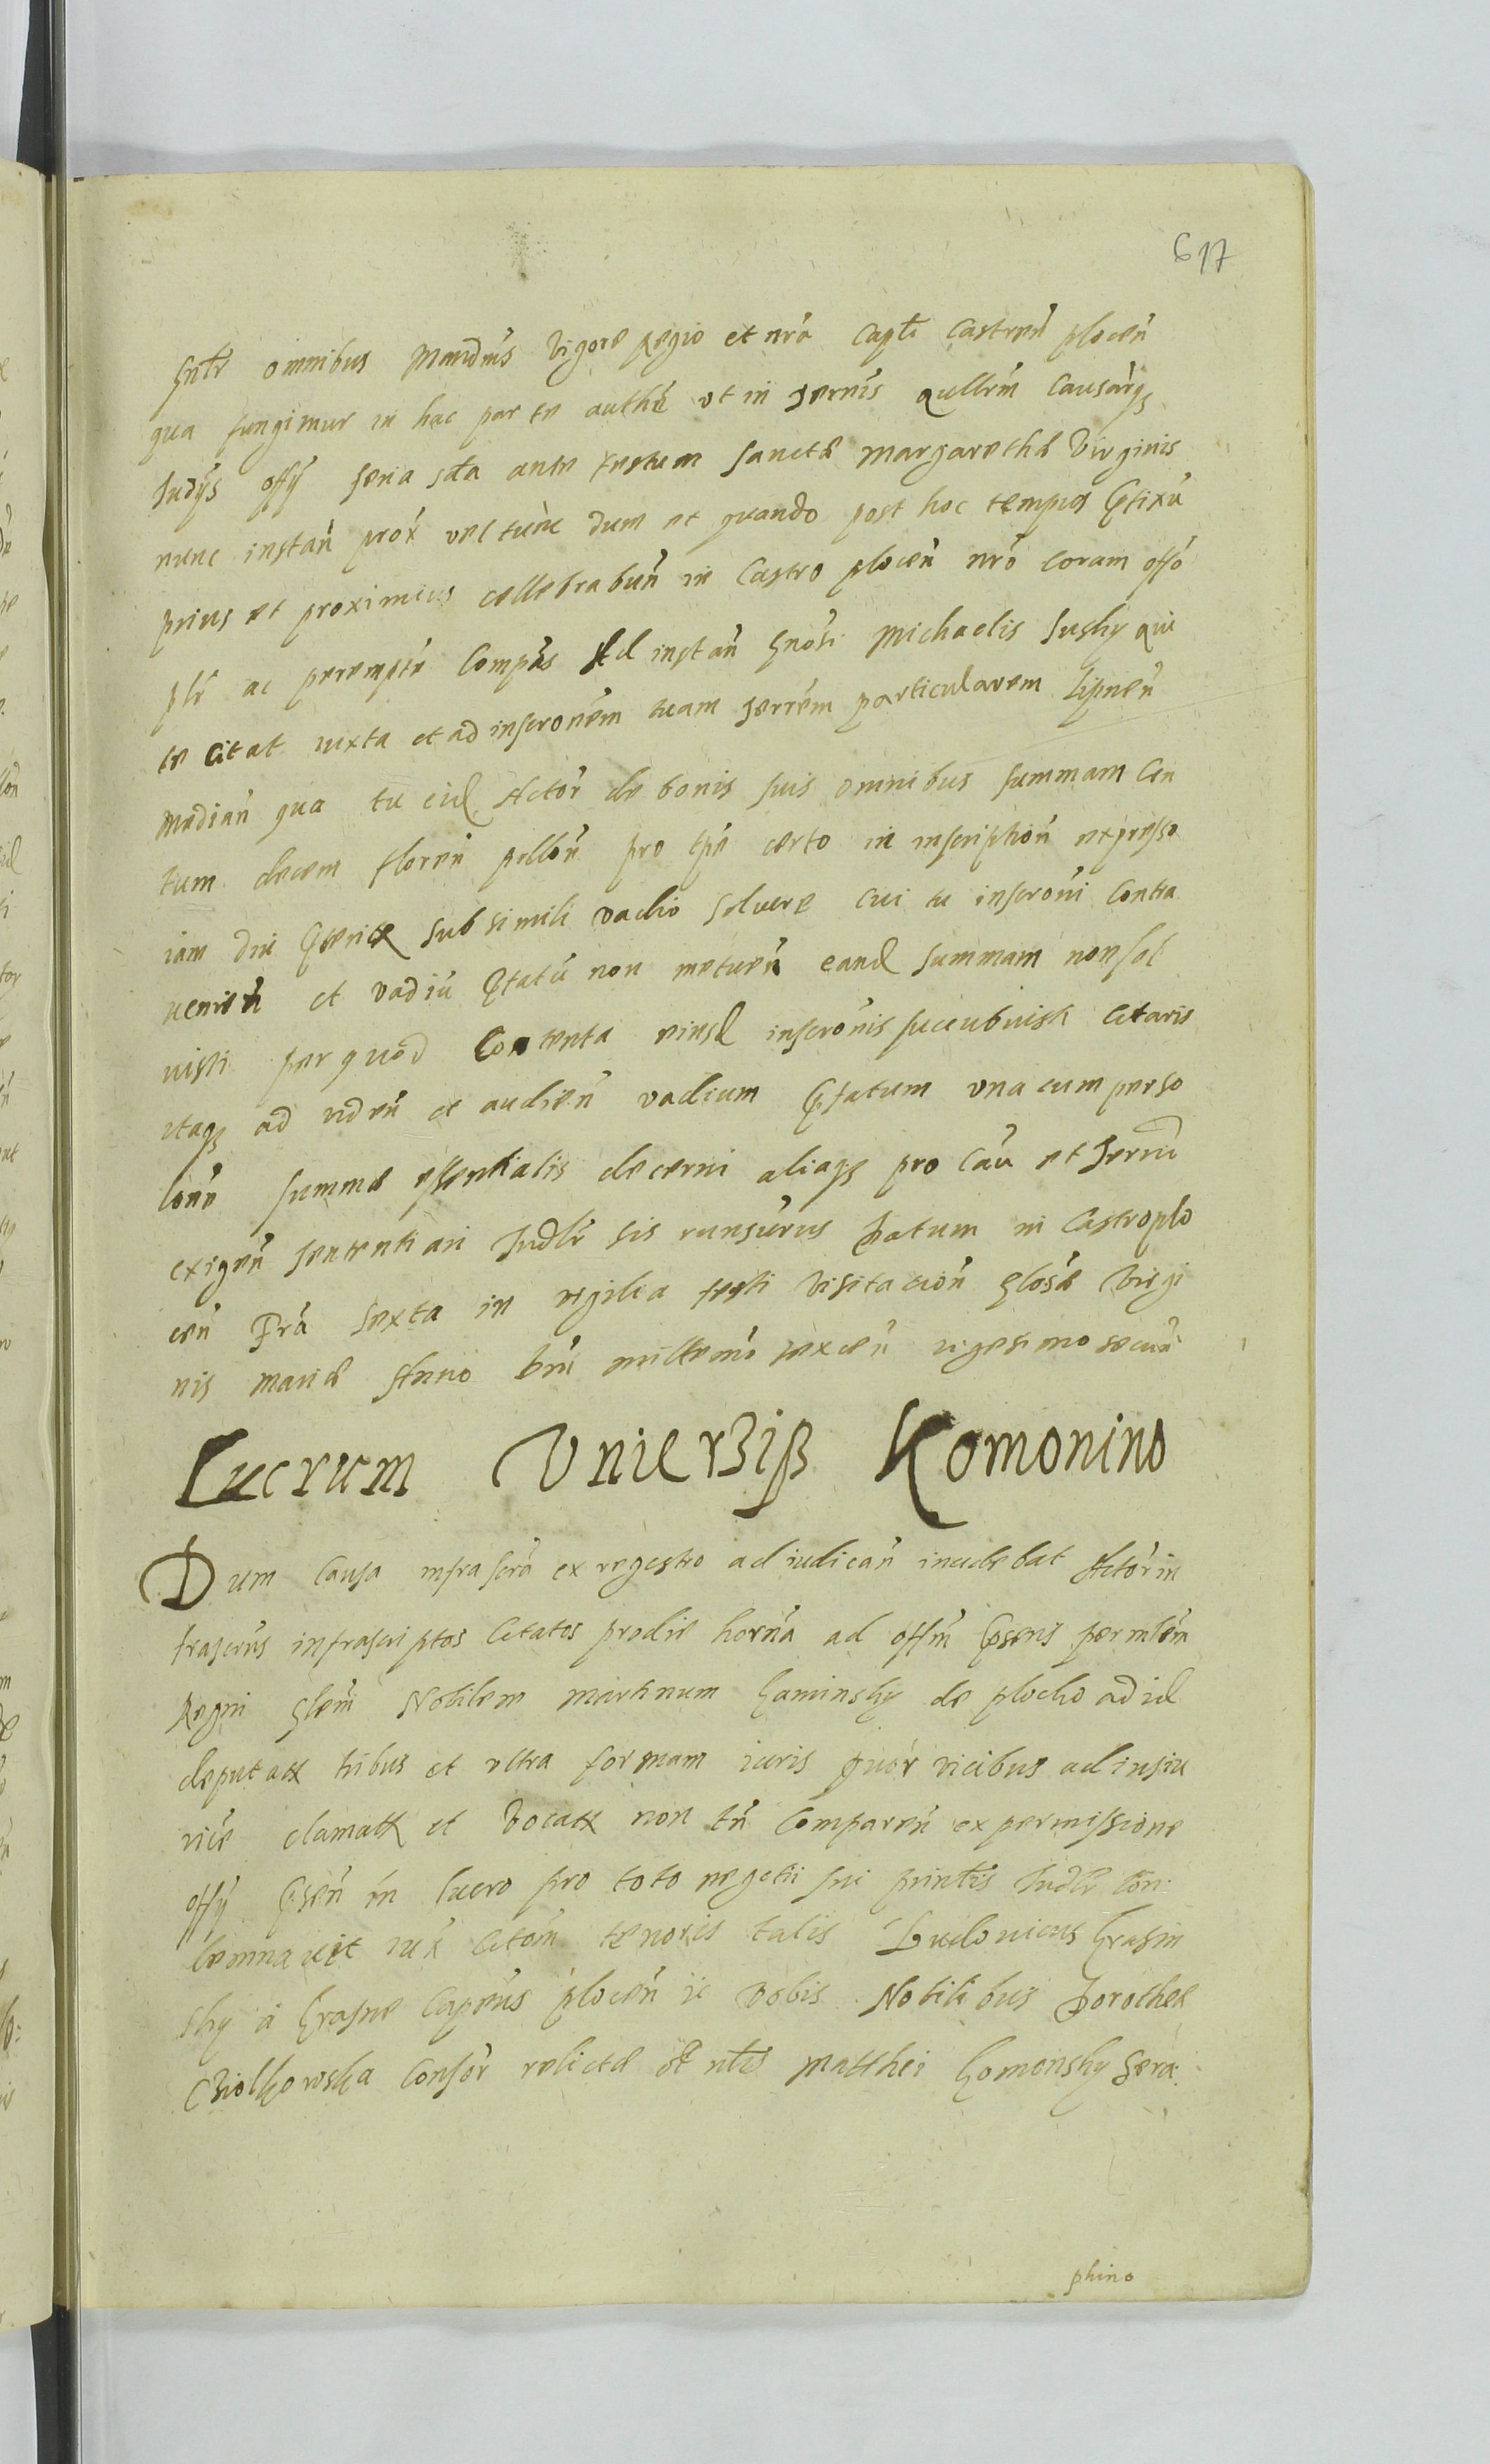 617
Gnlr omnibus Mandmus vigore Regio et nra Captli Castren plocen
qua fungimur in hac parte authe ut in Termis qullrm Causarqз
Judys offy feria scda ante Festum Sanctæ Margarethæ Virginis
nunc instan prox vel tunc dum et quando post hoc tempus
prius et proximius cellebrabun in Castro plocen nro coram offo
plr ac perempte Compas Ad instan Gnosi Michaelis Susky qui
te Citat iuxta et ad inscronem tuam Terrem particularem Lipnen
median qua tu eid Actor de bonis suis omnibus summam Cen
tum decem floren pollon pro tpe certo in inscription expresso
iam dni sub simili vadio soluere Cui tu inscroni Contra
uenien et vadiu non metuen eand summam non sol
uisti per quod Contenta eiusd inscronis succubuisti Citaris
itaqз ad viden et audien vadium una cum perso
lone summæ essentialis decerni aliaqз pro Cau et Termi
exigen sententiari Judlr sis runsurus Datum in Castro plo
cen Fra sexta in vigilia festi Visitacion Glosæ Virgi
nis Mariæ Anno Dni millemo sexcen vigesimo secun
Lucrum Komonino
Dum Causa infrascra ex regestro ad iudican incidebat Actor in
frascrus infrascriptos Citatos prodie horna ad offm psens per mlem
Regni glem Nobilem Martinum Kaminsky de plocko ad id
deputatt tribus et ultra formam iuris quor vicibus ad insiu
vice clamatt et Vocatt non tn Comparen ex permissione
offy in lucro pro toto negotii sui printis Judlr Con
demnauit iux Citom tenoris talis Ludouicus Krasin
sky a Krasne Capneus plocen ic Vobis Nobilibus Dorotheæ
Cziolkowska Consor relictæ ol nlis Matthei Komonsky Sera
phino